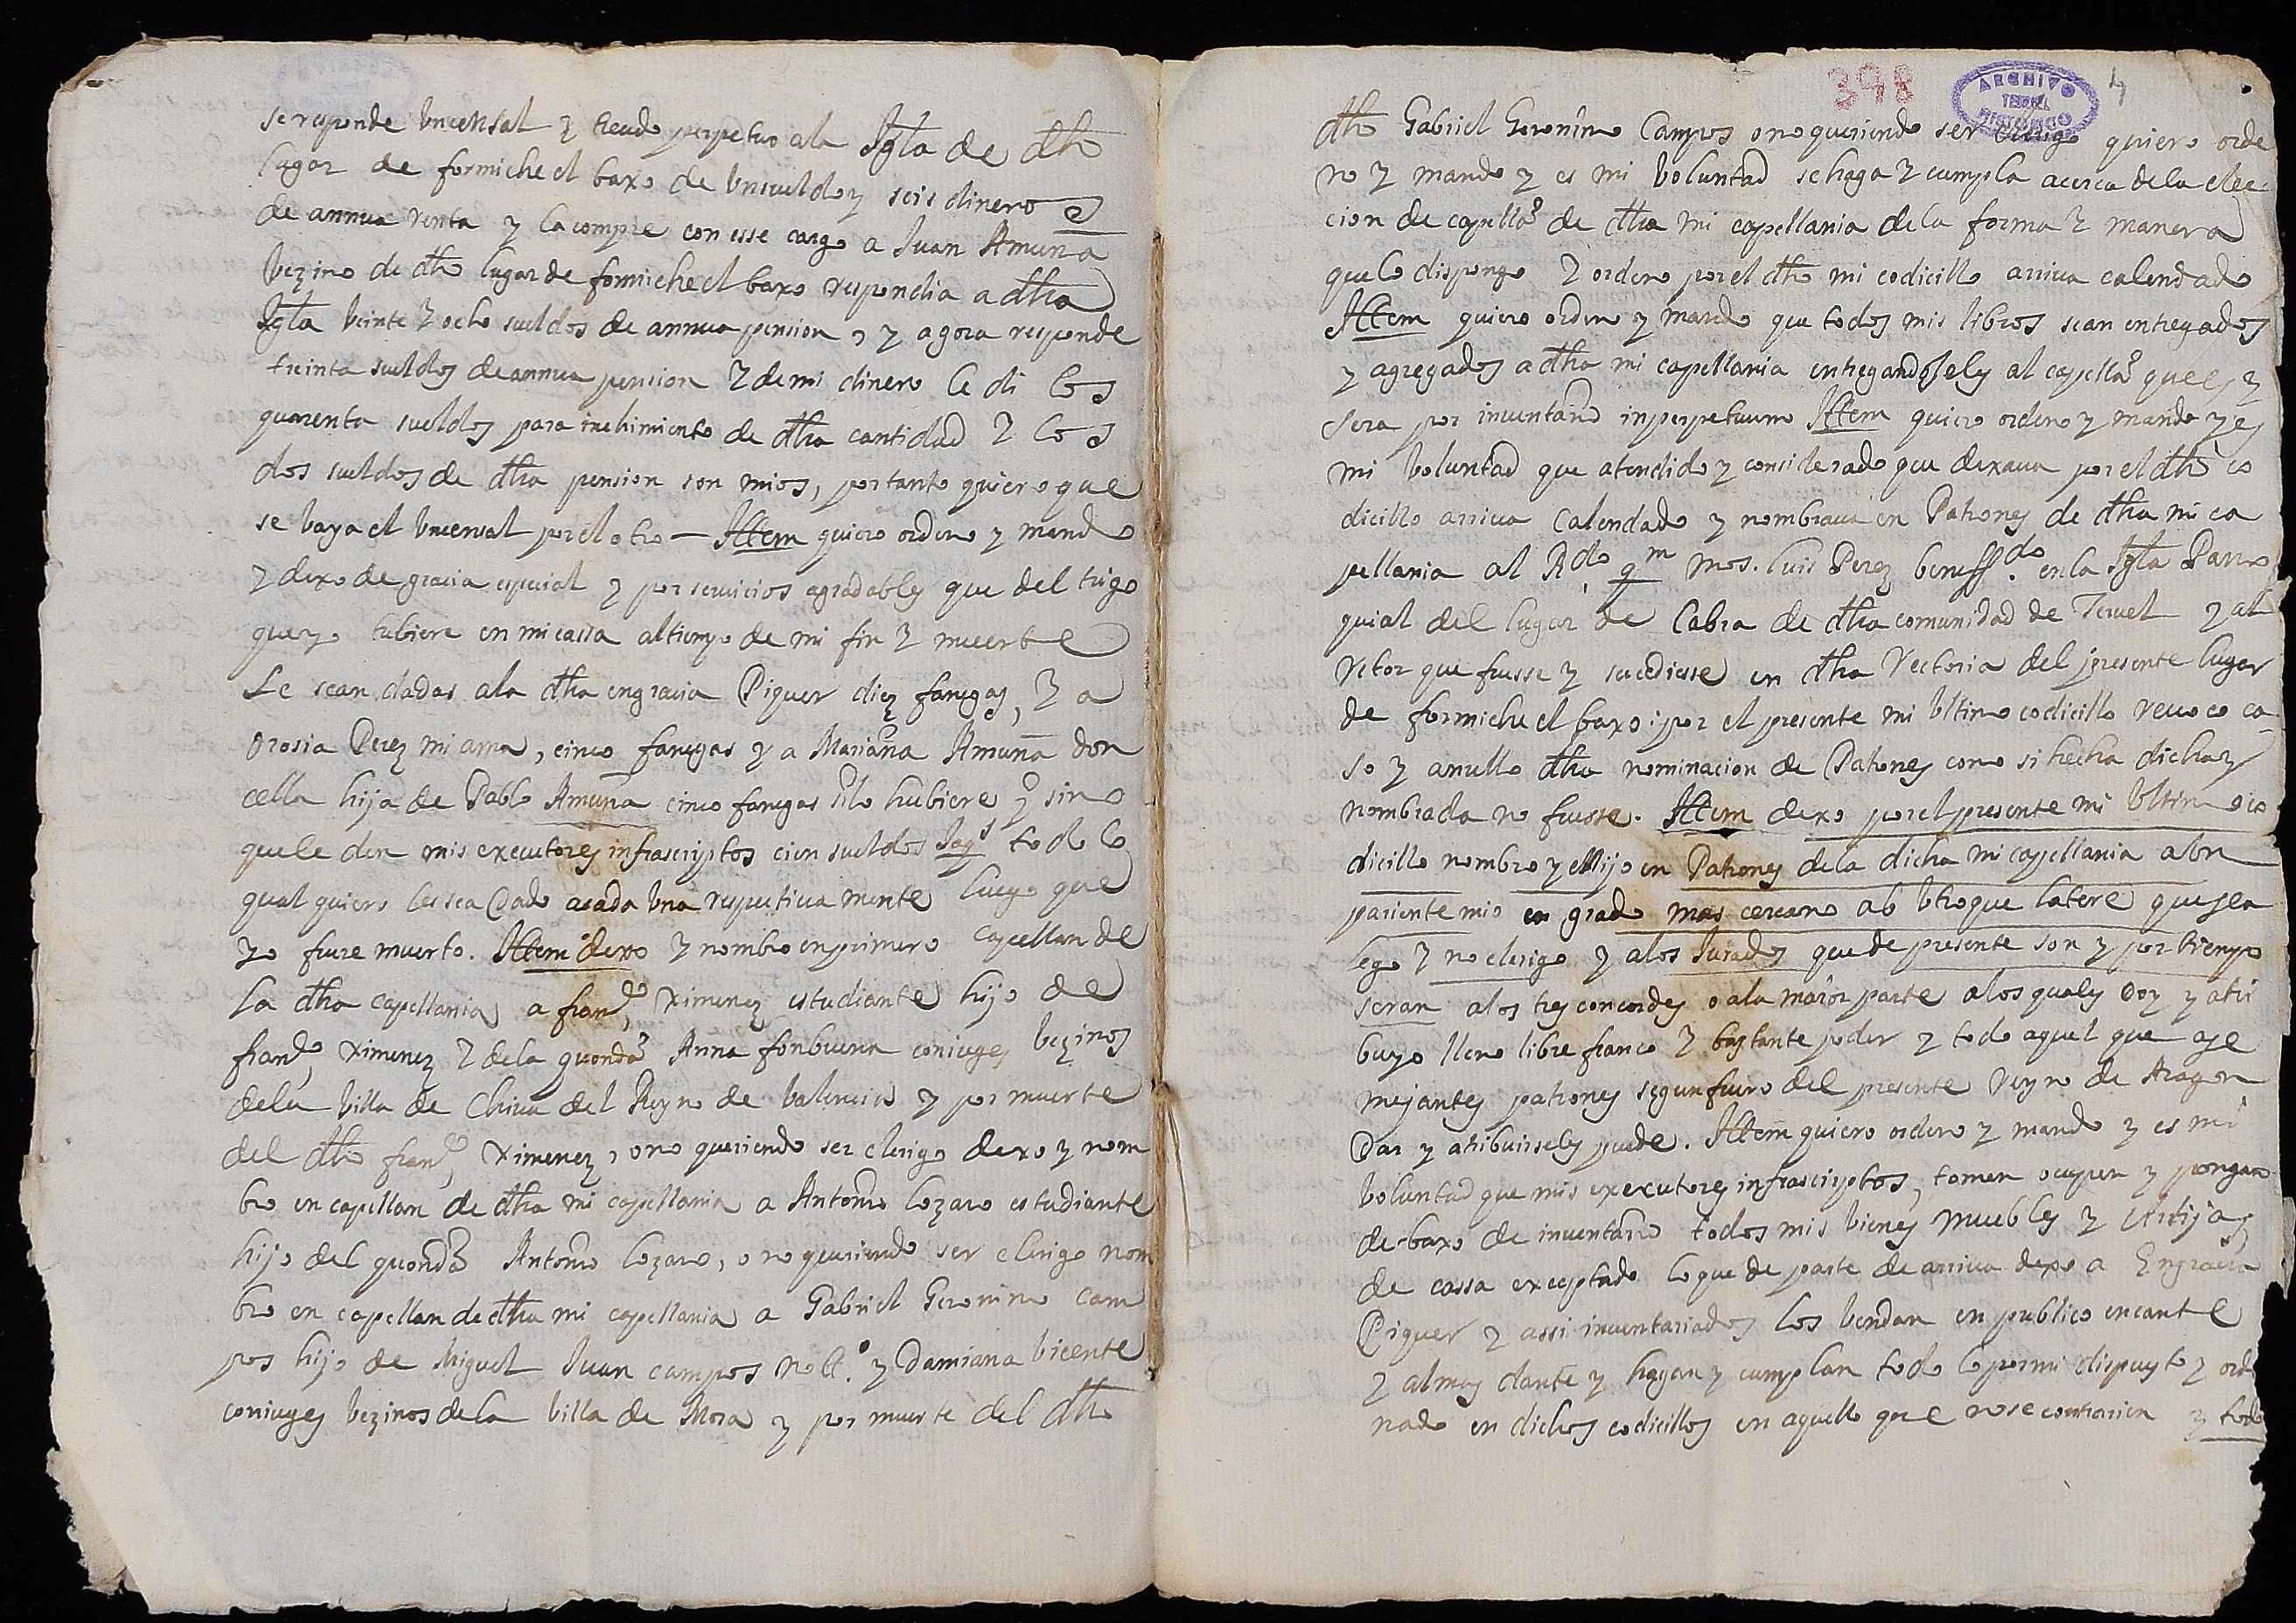 se responde un censal y treudo perpetuo a la Igla de dho
lugar de formiche el baxo de un sueldo y seis dineros
de annua renta y la compre con esse cargo a Juan Amuña
bezino de dho lugar de formiche el baxo respondia a dha
Igla veinte y ocho sueldos de annua pension, y agora responde
treinta sueldos de annua pension y de mi dinero le di los
quarenta sueldos para inchimiento de dha cantidad y los
dos sueldos de dha pension son mios, por tanto quiero que
se vaya el un censal por el otro — Ittem quiero ordeno y mando
y dexo de gracia especial y por servicios agradables que del trigo
que yo tubiere en mi cassa al tiempo de mi fin y muerte
Le sean dadas a la dha engracia Piquer diez fanegas, y a
Orosia Perez mi ama, cinco fanegas y a Mariana Amuña don
cella hija de Pablo Amuña cinco fanegas si lo hubiere y sino
que le den mis executores infrascriptos cien sueldos Jaqs todo lo
qual quiero les sea dado a cada una respectivamente luego que
yo fuere muerto. Ittem dexo y nombro en primero capellan de
la dha capellania a franco Ximenez estudiante hijo de
franco Ximenez y de la quonda Anna fonbuena coniuges bezinos
de la villa de Chiva del Reyno de valencia y por muerte
del dho franco Ximenez, o no queriendo ser clerigo dexo y nom
bro en capellan de dha mi capellania a Antonio Lozano estudiante
hijo del quonda Antonio Lozano, o no queriendo ser clerigo nom
bro en capellan de dha mi capellania a Gabriel Geronimo cam
pos hijo de Miguel Juan campos nott.º y Damiana vicente
coniuges bezinos de la villa de Mora y por muerte del dho
398
4
ARCHIVO
HISTORICO
TERUEL
dho Gabriel Geronimo Campos o no queriendo ser clerigo quiero orde
no y mando y es mi voluntad se haga y cumpla acerca de la elec
cion de capellaº de dha mi capellania de la forma y manera
que lo dispongo y ordeno por el dho mi codicillo arriva calendado
Ittem quiero ordeno y mando que todos mis libros sean entregados
y agregados a dha mi capellania entregandoselos al capellaº que es y
sera por inventario inperpetuum Ittem quiero ordeno y mando y es
mi voluntad que atendido y considerado que dexava por el dho co
dicillo arriva calendado y nombrava en Patrones de dha mi ca
pellania al Rdo qm mos. luis Perez beneffdo. en la Igla Parro
quial del lugar de Cabra de dha comunidad de Teruel y al
retor que fuesse y sucediesse en dha Rectoria del presente lugar
de formiche el baxo: por el presente mi ultimo codicillo revoco ca
so y anullo dha nominacion de Patrones como si hecha dicha y
nombrada no fuesse. Ittem dexo por el presente mi ultimo co
dicillo nombro y ellijo en Patrones de la dicha mi capellania a un
pariente mio en grado mas cercano ab utroque latere que sea
lego y no clerigo y a los Jurados que de presente son y por tiempo
seran a los tres concordes o a la maior parte a los quales doy y atri
buyo lleno libre franco y bastante poder y todo aquel que a se
mejantes patrones segun fuero del presente Reyno de Aragon
dar y atribuirseles puede. Ittem quiero ordeno y mando y es mi
voluntad que mis executores infrascriptos, tomen ocupen y pongan
de baxo de inventario todos mis bienes muebles y
de cassa exceptado lo que de parte de arriva dexo a Engracia
Piquer y assi inventariados los vendan en publico encante
y al mas dante y hagan y cumplan todo lo por mi dispuesto y orde
nado en dichos codicillos en aquello que no se contrarien y todo